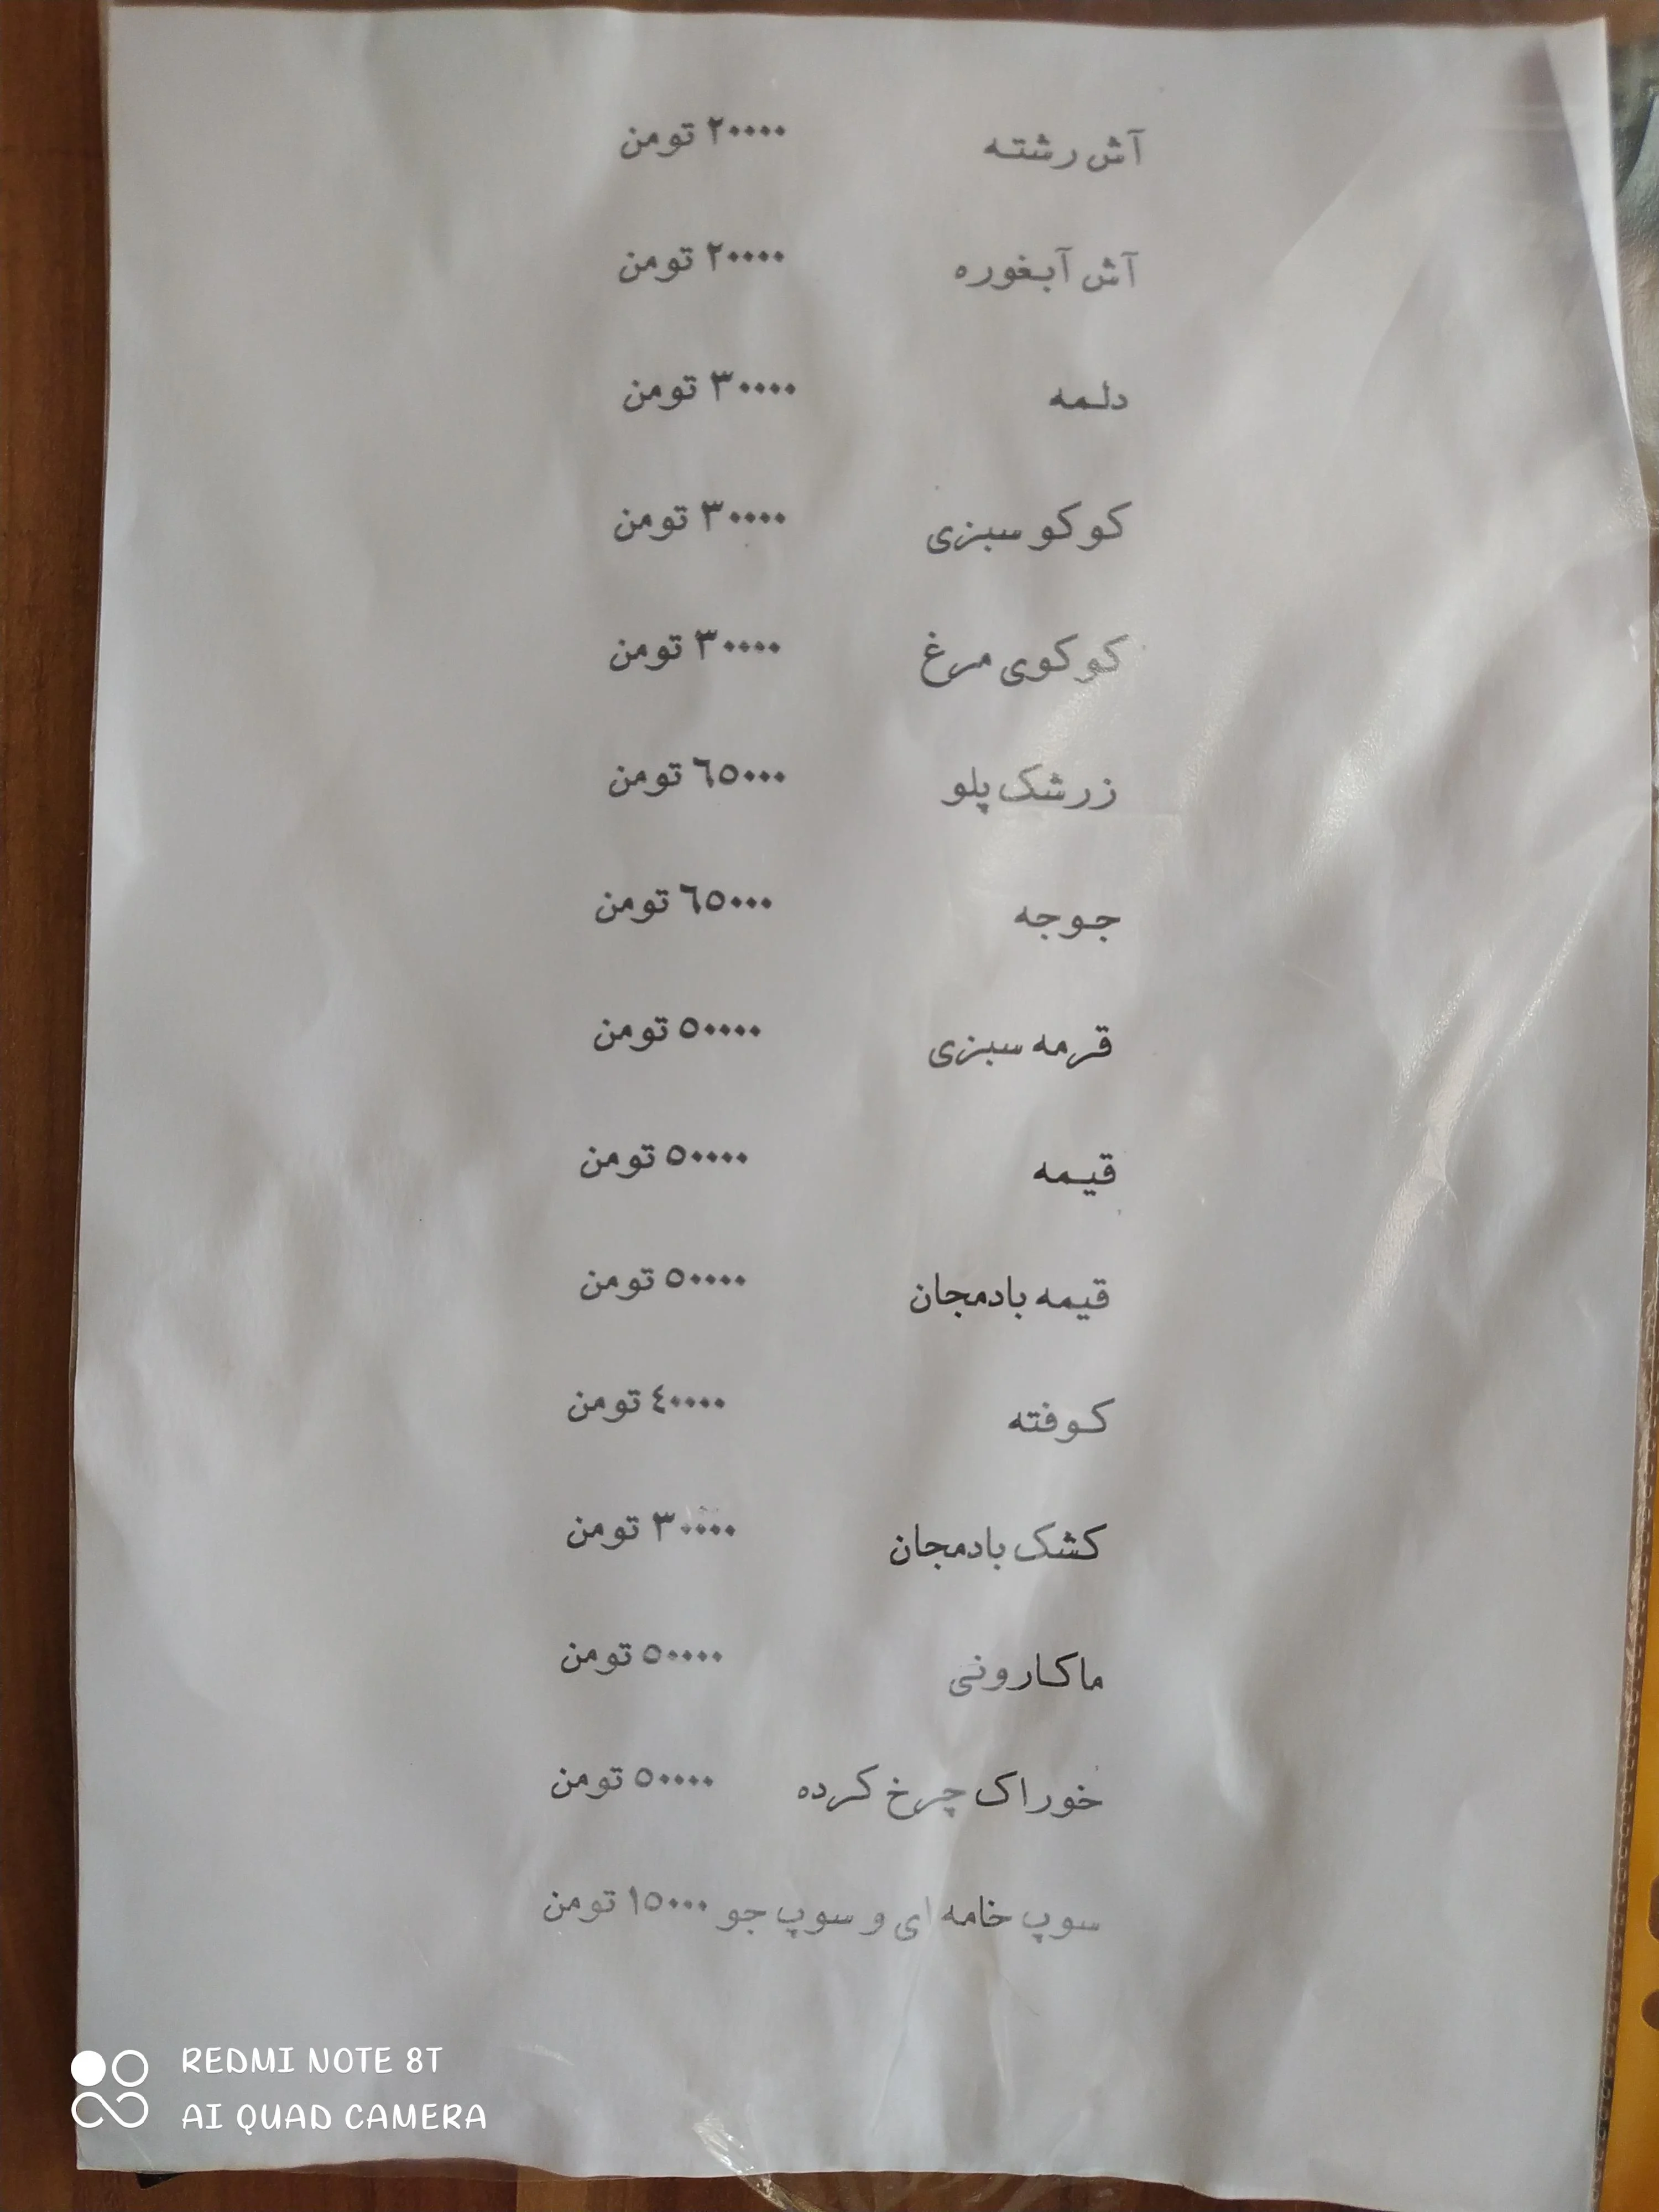 آش رشته ۲۰۰۰۰ تومن
آش آبغوره ۲۰۰۰۰ تومن
دلمه ۳۰۰۰۰ تومن
کوکو سبزی ۳۰۰۰۰ تومن
کوکوی مرغ ۳۰۰۰۰ تومن
زرشک پلو ٦٥۰۰۰ تومن
جوجه ٦٥۰۰۰ تومن
قرمه سبزی ٥۰۰۰۰ تومن
قیمه ٥۰۰۰۰ تومن
قیمه بادمجان ٥۰۰۰۰ تومن
کوفته ٤۰۰۰۰ تومن
کشک بادمجان ۳۰۰۰۰ تومن
ماکارونی ٥۰۰۰۰ تومن
خوراک چرخ کرده ٥۰۰۰۰ تومن
سوپ خامه ای و سوپ جو ۱٥۰۰۰ تومن
REDMI NOTE 8T
AI QUAD CAMERA